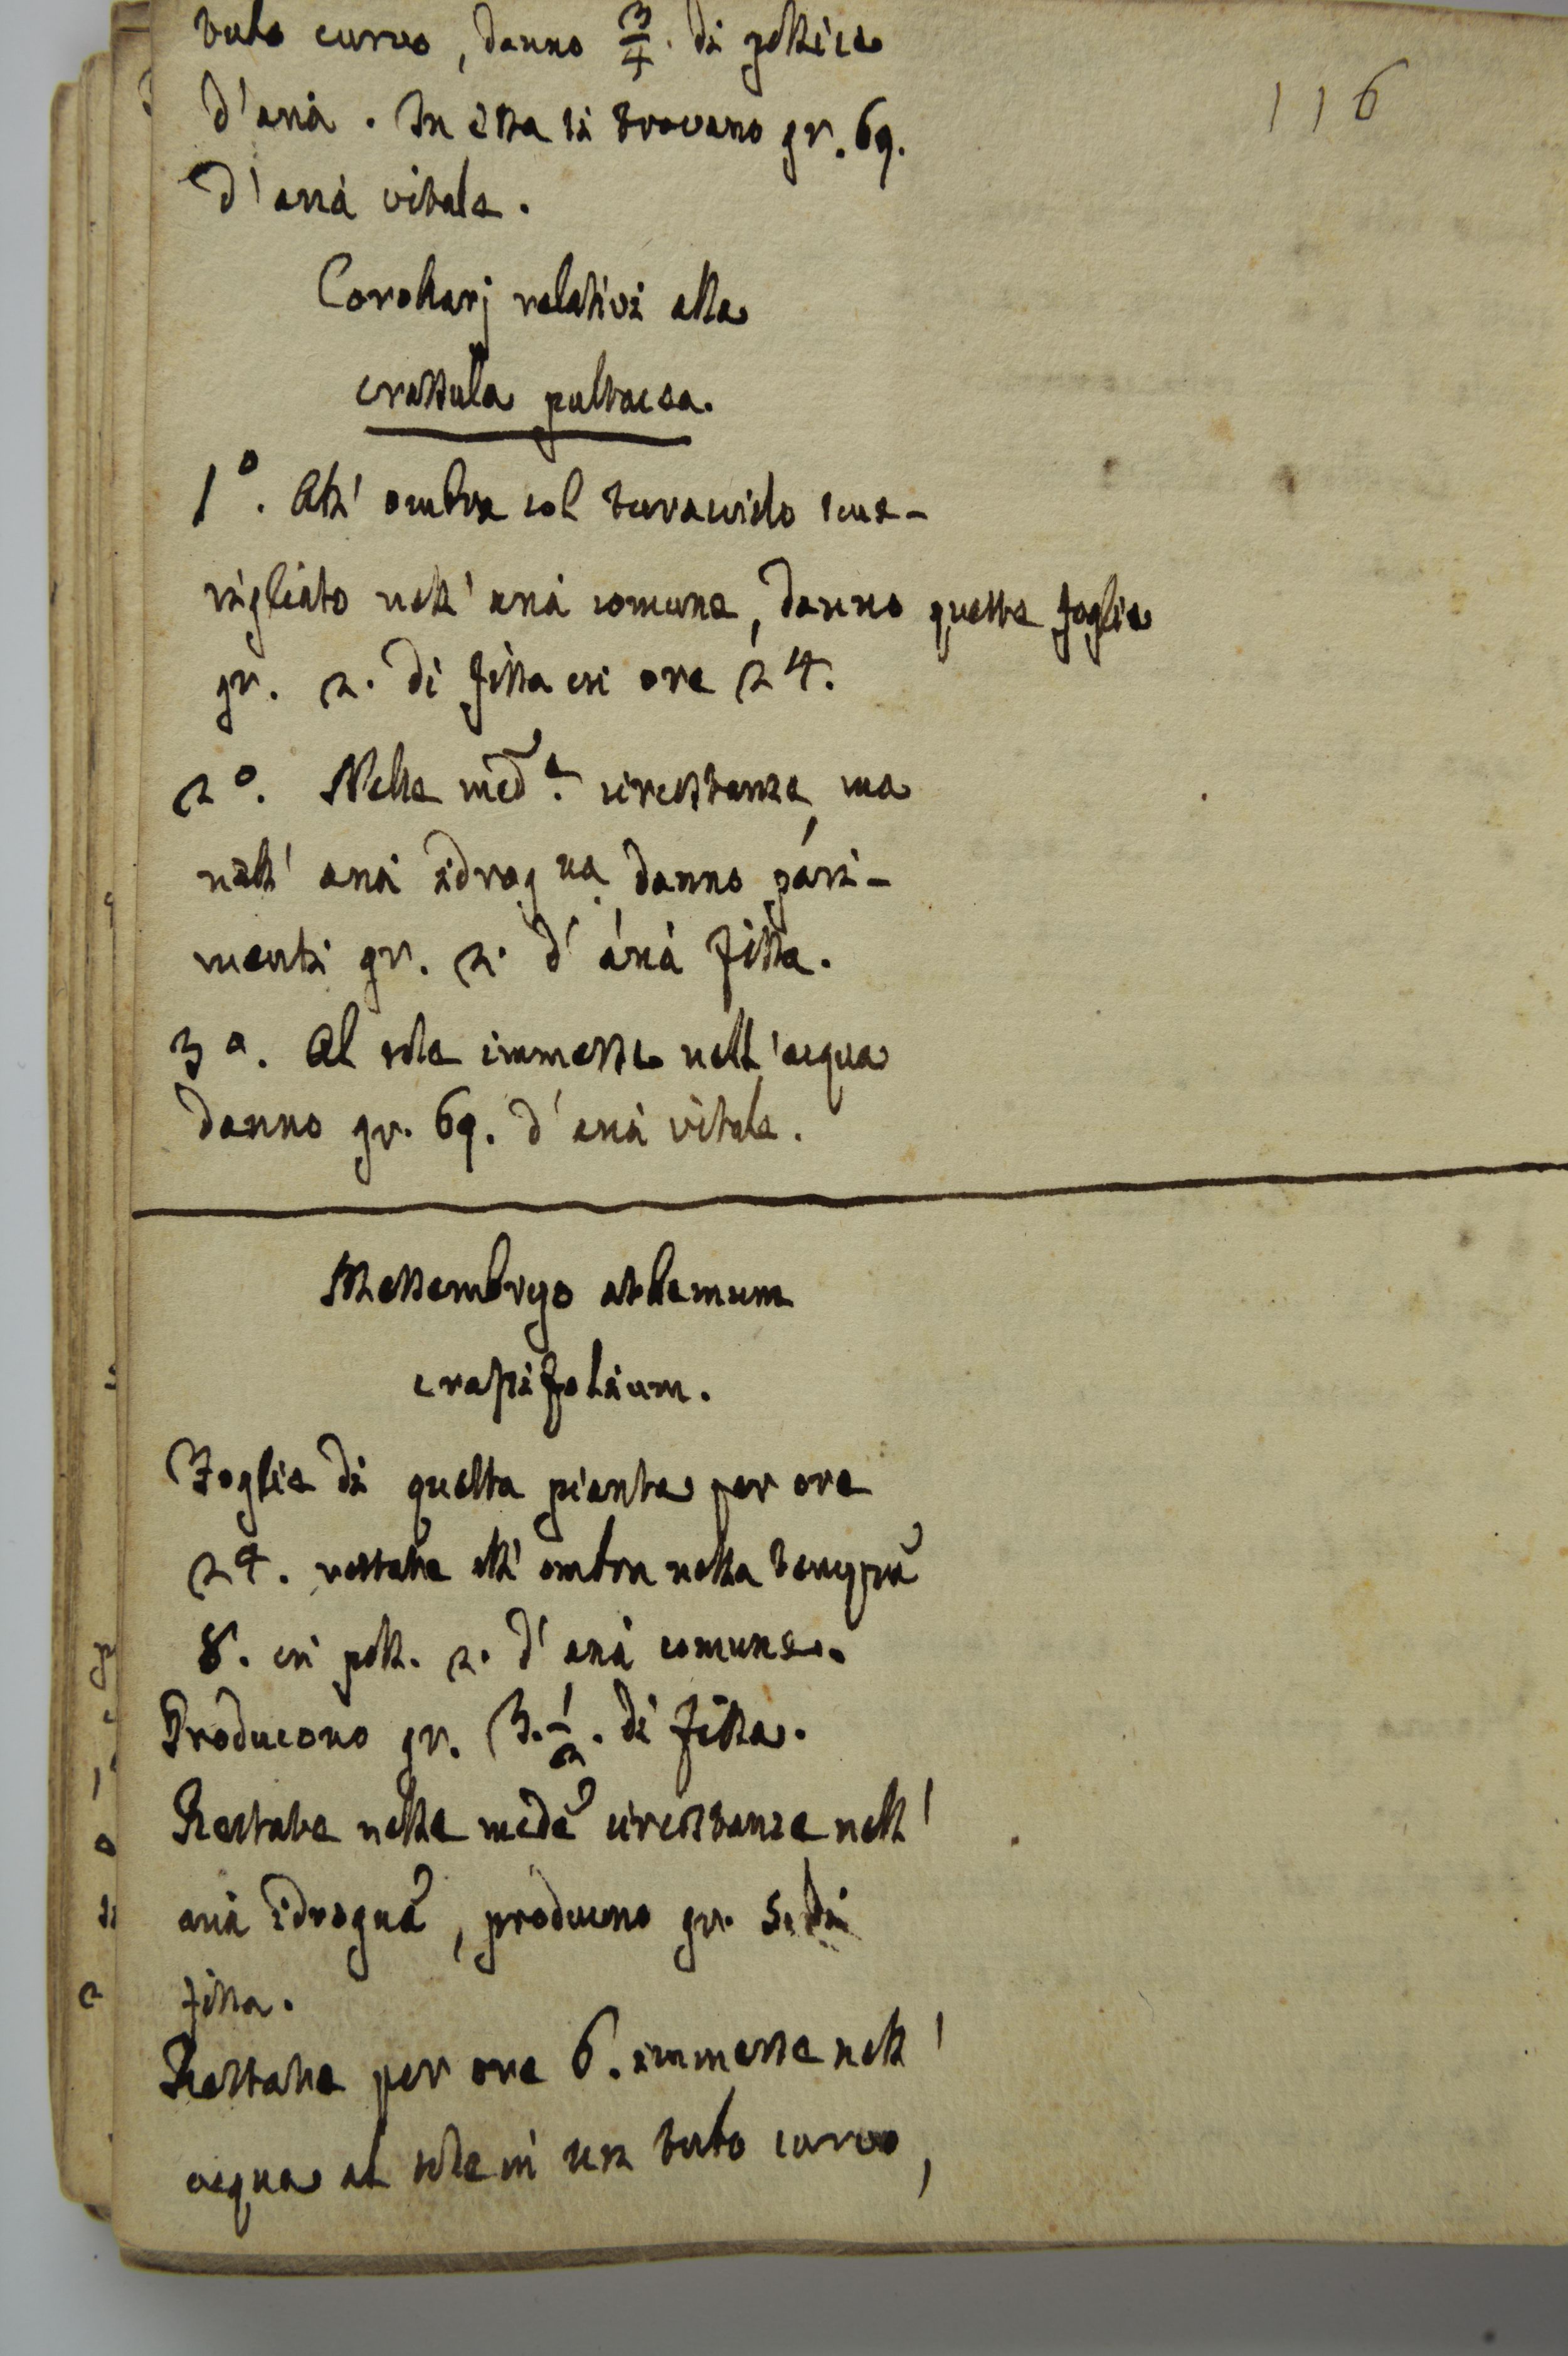 116
tubo curvo, danno 3/4. di pollice
d'aria. In essa si trovano gr. 69.
d'aria vitale.
Corollarj relativi alla
crassula pultacea.
1°. All' ombra col turacciolo sme-
rigliato nell' aria comune, danno queste foglie
gr. 2. di fissa in ore 24.
2°. Nelle med.e circostanze, ma
nell' aria idrog.na danno pari-
menti gr. 2. d' aria fissa.
3°. Al sole immerse nell' acqua
danno gr. 69. d' aria vitale.
Messembryo athemum
crassifolium.
Foglie di questa pianta per ore
24. restate all' ombra nella temp.ra
8. in poll. 2. d' aria comune.
Producono gr. 3. 1/2. di fissa.
Restate nelle mede circostanze nell'
aria idrogna, producono gr. 5. di
fissa.
Restate per ore 6. immerse nell'
acqua al sole in un tubo curvo,